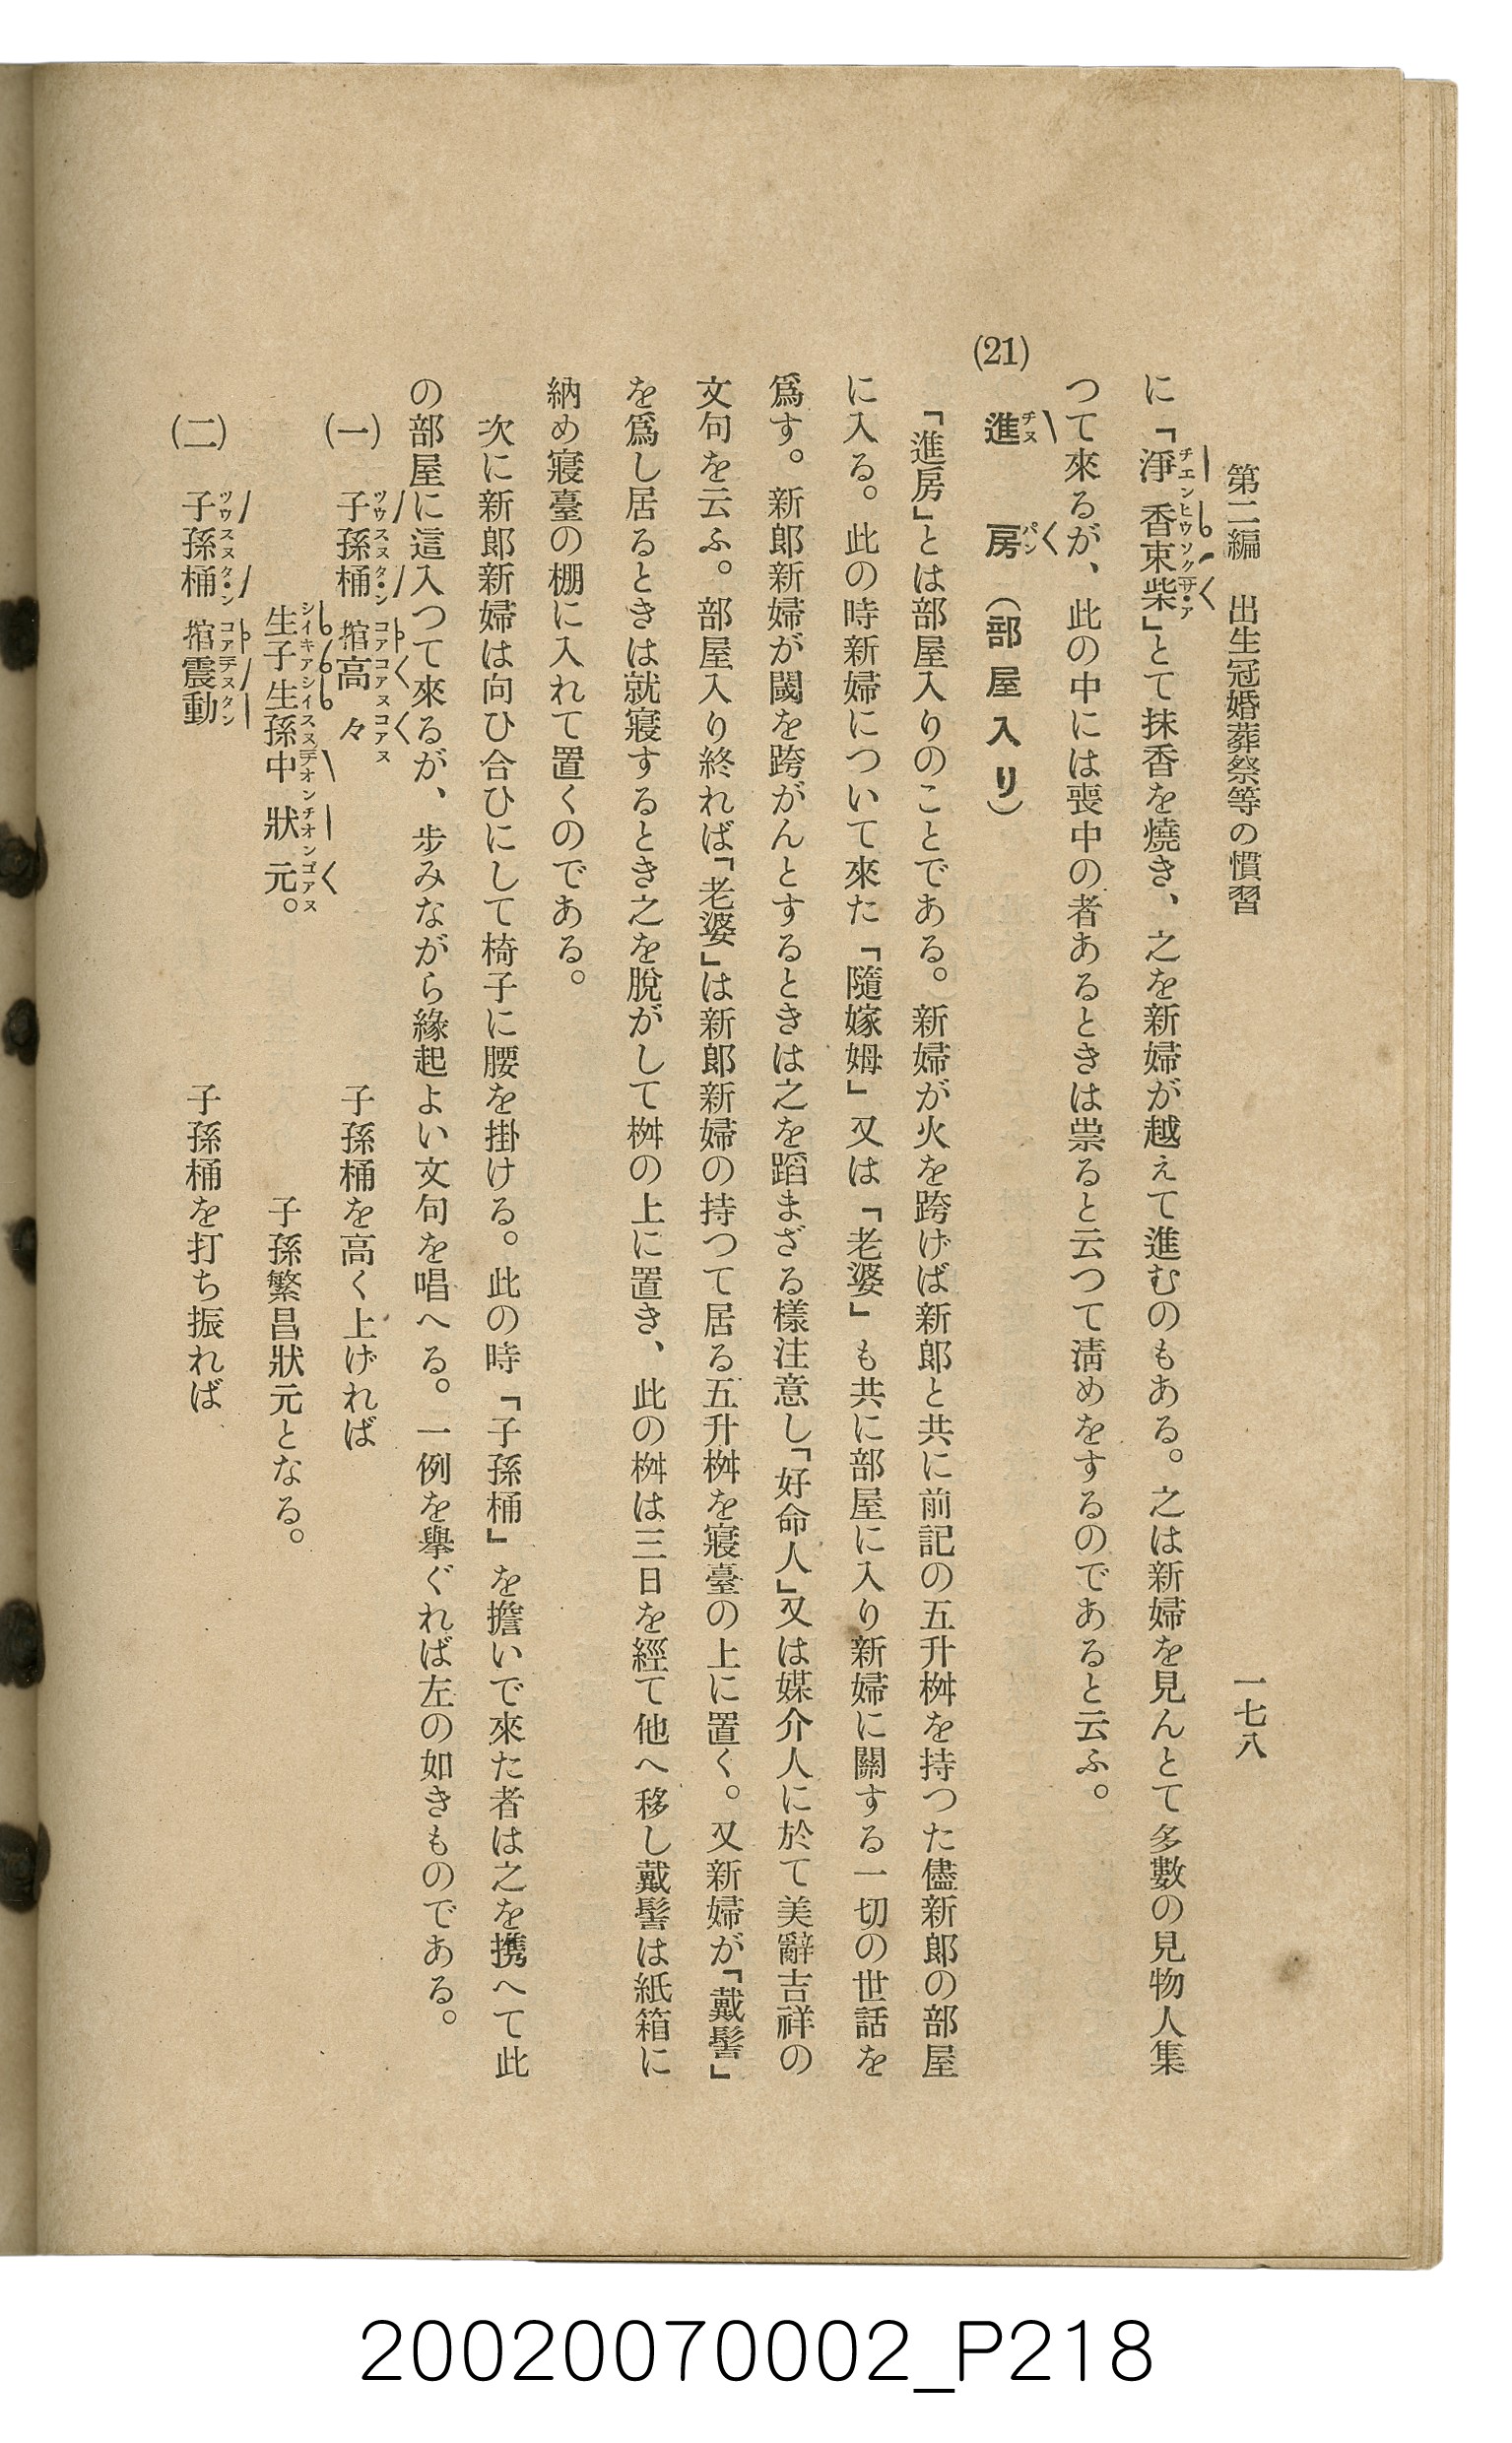 第二編　出生冠婚葬祭等の慣習
一七八
に「淨香束柴」とて抹香を燒き、之を新婦が越えて進むのもある。之は新婦を見んとて多數の見物人集
つて來るが、此の中には喪中の者あるときは祟ると云つて淸めをするのであると云ふ。
(21)　進房（部屋入り）
「進房」とは部屋入りのことである。新婦が火を跨げば新郎と共に前記の五升桝を持つた儘新郎の部屋
に入る。此の時新婦について來た「隨嫁姆」又は「老婆」も共に部屋に入り新婦に關する一切の世話を
爲す。新郎新婦が閾を跨がんとするときは之を蹈まざる樣注意し「好命人」又は媒介人に於て美辭吉祥の
文句を云ふ。部屋入り終れば「老婆」は新郎新婦の持つて居る五升桝を寢臺の上に置く。又新婦が「戴髻」
を爲し居るときは就寢するとき之を脫がして桝の上に置き、此の桝は三日を經て他へ移し戴髻は紙箱に
納め寢臺の棚に入れて置くのである。
次に新郎新婦は向ひ合ひにして椅子に腰を掛ける。此の時「子孫桶」を擔いで來た者は之を携へて此
の部屋に這入つて來るが、步みながら緣起よい文句を唱へる。一例を擧ぐれば左の如きものである。
（一）　子孫桶捾高々　子孫桶を高く上げれば
生子生孫中狀元。　子孫繁昌狀元となる。
（二）　子孫桶捾震動　子孫桶を打ち振れば
20020070002_P218